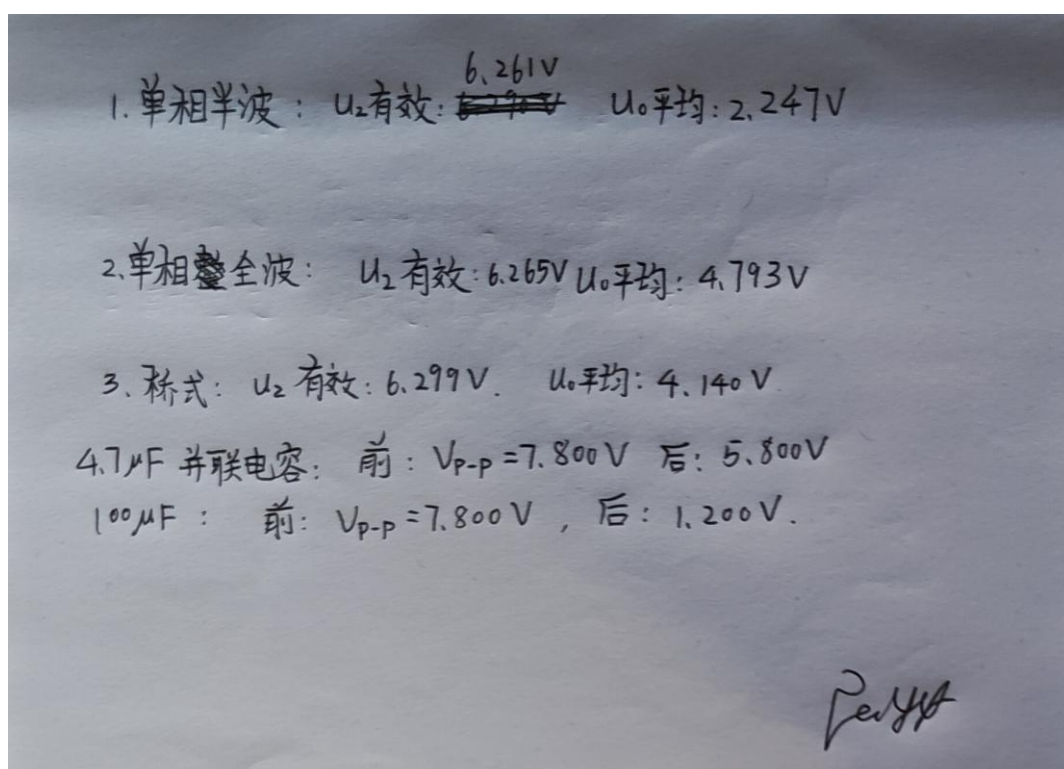 6.261V
1.单相半波: U₂有效: U₀平均: 2.247V
2.单相全波: U₂有效: 6.265V U₀平均: 4.793V
3. 桥式: U₂有效: 6.299V. U₀平均: 4.140V
4.7μF 并联电容: 前: Vp-p=7.800V 后: 5.800V
100μF: 前: Vp-p=7.800V, 后: 1.200V.